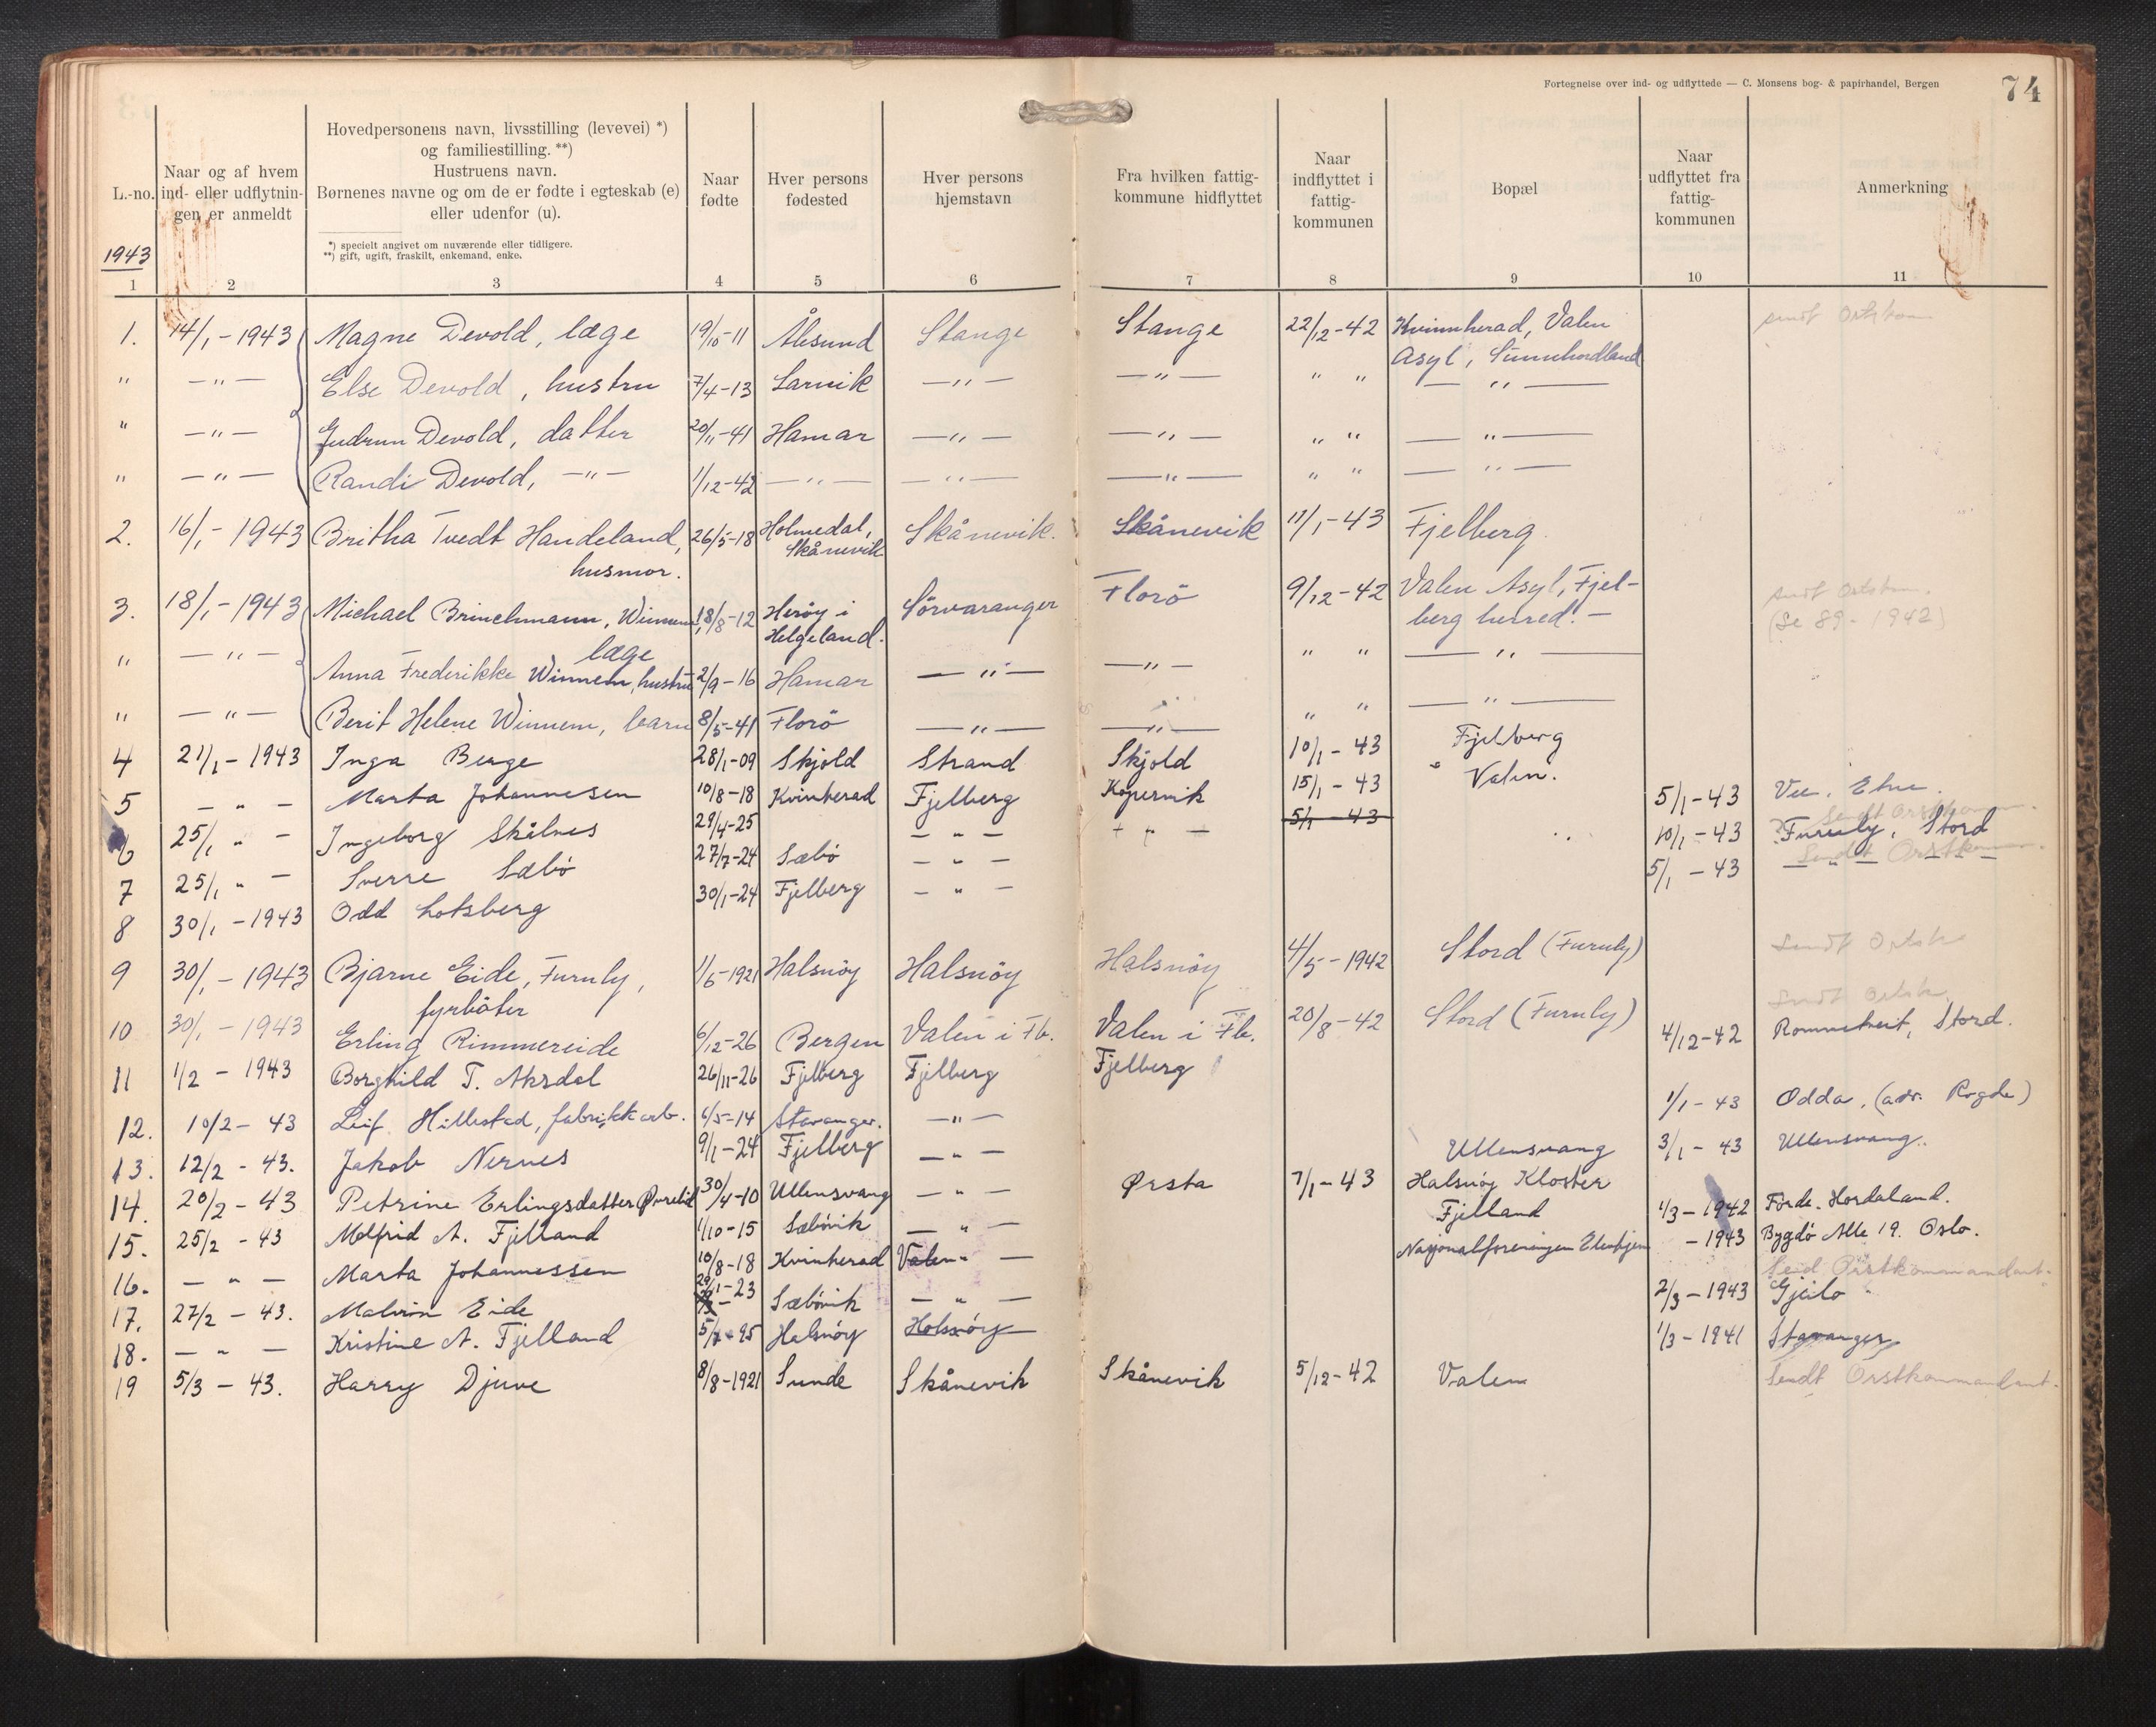 Fortegnelse over ind- og udflyttede — C. Monsens bog- & papirhandel, Bergen
74
L.-no.
1943
1
Naar og af hvem
ind- eller udflytnin-
gen er anmeldt
2
Hovedpersonens navn, livsstilling (levevei) *)
og familiestilling. **)
Hustruens navn.
Børnenes navne og om de er fødte i egteskab (e)
eller udenfor (u).
*) specielt angivet om nuværende eller tidligere.
**) gift, ugift, fraskilt, enkemand, enke.
3
Naar
fødte
4
Hver persons
fødested
5
Hver persons
hjemstavn
6
Fra hvilken fattig-
kommune hidflyttet
7
Naar
indflyttet i
fattig-
kommunen
8
Bopæl
9
Naar
udflyttet fra
fattig-
kommunen
10
Anmerkning
11
1. 14/1-1943 Magne Devold, læge 19/10-11 Ålesund Stange Stange 22/12-42 Kvinnherad, Valen
Asyl, Sunnhordland
" —"— Else Devold, hustru 7/4-13 Larvik —"— —"— " " —"—
" —"— Gudrun Devold, datter 20/11-41 Hamar —"— —"— " " —"—
" —"— Randi Devold, —"— 1/12-42 —"— —"— —"— " " —"—
2. 16/1-1943 Britha Tvedt Handeland, 26/5-18 Holmedal, Skånevik. Skånevik 11/1-43 Fjelberg
husmor. Skånevik
3. 18/1-1943 Michael Brinchmann, Winnem, 18/8-12 Herøy i Sörvaranger Florö 9/12-42 Valen Asyl, Fjel-
læge Helgeland. berg herred. — (Se 89-1942)
" —"— Anna Frederikke Winnem, hustru 2/9-16 Hamar —"— —"— " " —"—
" —"— Berit Helene Winnem, barn 8/5-41 Florö —"— —"— " " —"—
4 21/1-1943 Inga Berge 28/1-09 Skjold Strand Skjold 10/1-43 Fjelberg
5 — " — Marta Johannesen 10/8-18 Kvinherad Fjelberg Kopervik 15/1-43 Valen. 5/1-43 Etne.
6 25/1 " — Ingeborg Skålnes 29/4-25 — " — — " — 5/1-43 10/1-43 Furuly, Stord
7 25/1 " — Sverre Sæbö 27/7-24 Sæbö — " — 5/1-43 — " — " —
8 30/1-1943 Odd Lotsberg 30/1-24 Fjelberg — " —
9 30/1-1943 Bjarne Eide, Furuly, 1/6-1921 Halsnöy Halsnöy Halsnöy 4/5-1942 Stord (Furuly)
fyrböter
10 30/1-1943 Erling Rimmereide 6/12-26 Bergen Valen i Fb. Valen i Fb. 20/8-42 Stord (Furuly)
11 1/2-1943 Borghild T. Aksdal 26/11-26 Fjelberg Fjelberg Fjelberg 4/12-42 Rommetveit, Stord.
12. 10/2-43 Leif Hillestad, fabrikkarb. 6/5-14 Stavanger. —"— 1/1-43 Odda, (adr. Ragde)
13. 12/2-43. Jakob Nernes 9/1-24 Fjelberg —"— Ullensvang 3/1-43 Ullensvang.
14. 20/2-43 Petrine Erlingsdatter 30/4-10 Ullensvang — " — Ørsta 7/1-43 Halsnøy Kloster
15. 25/2-43 Molfrid A. Fjelland 1/10-15 Sæbövik — " — Fjelland 1/3-1942 Förde, Hordaland.
16. — " — Marta Johannessen 10/8-18 Kvinherad Valen " — Nasjonalforeningen -1943 Bygdö Alle 19. Oslo.
17. 27/2-43. Malvin Eide 29/1-23 Sæbövik — " — 2/3-1943 Gjeilo
18. — " — Kristine A. Fjelland 5/7-95 Halsnöy Halsnöy 1/3-1941 Stavanger
19 5/3-43. Harry Djuve 8/8-1921 Sunde Skånevik Skånevik 5/12-42 Valen Sendt Orstkommandant.